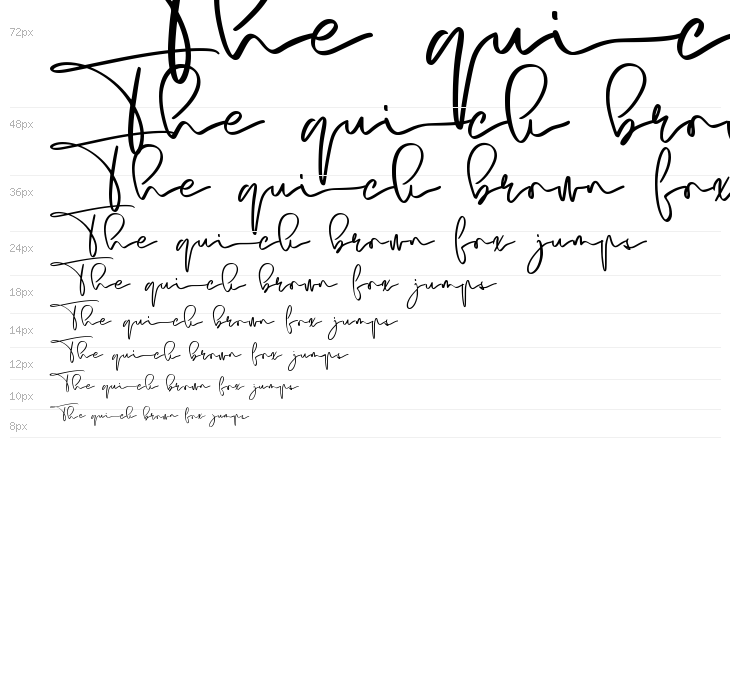 72px The quic
48px The quick brow
36px The quick brown fox
24px The quick brown fox jumps
18px The quick brown fox jumps
14px The quick brown fox jumps
12px The quick brown fox jumps
10px The quick brown fox jumps
8px The quick brown fox jumps